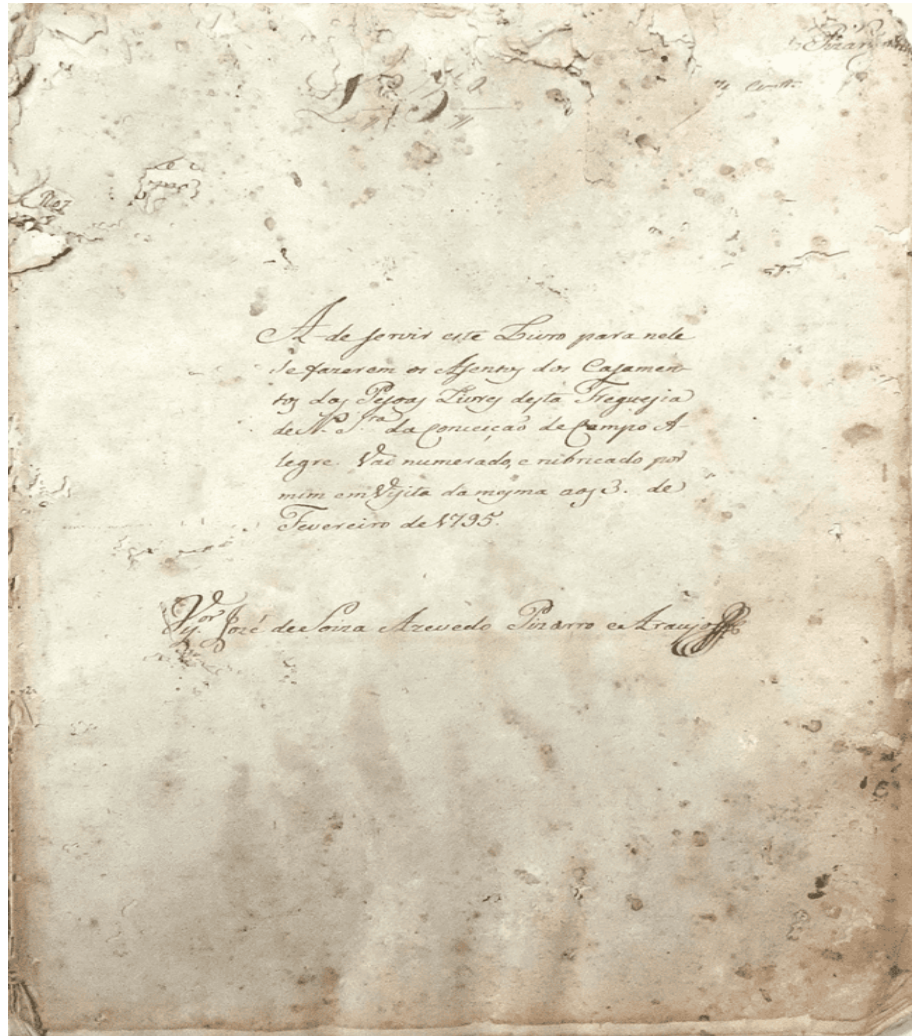 Pizarro
A de servir este Livro para nele
se fazerem os Asentos dos Casamen-
tos das Pesoas Livres desta Freguesia
de N. Sra. da Conceiçaõ de Campo A-
legre. Vai numerado, e rubricado por
mim em Visita da mesma aos 3. de
Fevereiro de 1795.
José de Soiza Azevedo Pizarro e Araujo